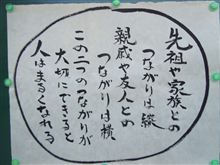 先祖や家族との
つながりは縦
親戚や友人との
つながりは横
この二つのつながりが
大切にできると
人はまるくなれる